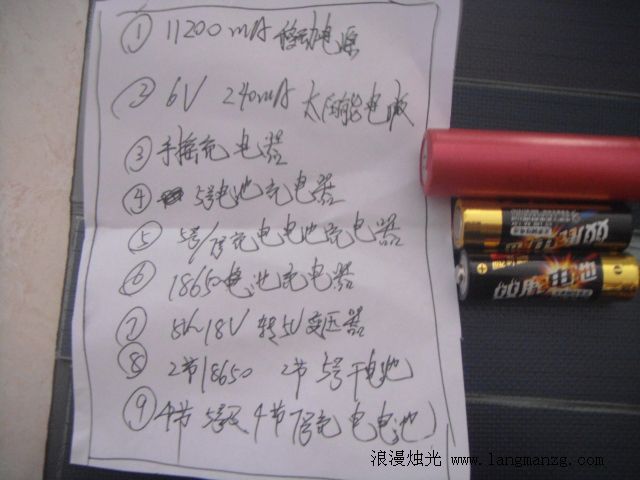 ① 11200mA 移动电源
② 6V 240mA 太阳能电板
③ 手摇充电器
④ 5号电池充电器
⑤ 5号/7号充电电池充电器
⑥ 18650电池充电器
⑦ 5V~18V 转5V变压器
⑧ 2节18650 2节5号干电池
⑨ 4节5号及4节7号充电电池
双鹿电池
浪漫烛光 www.langmanzg.com